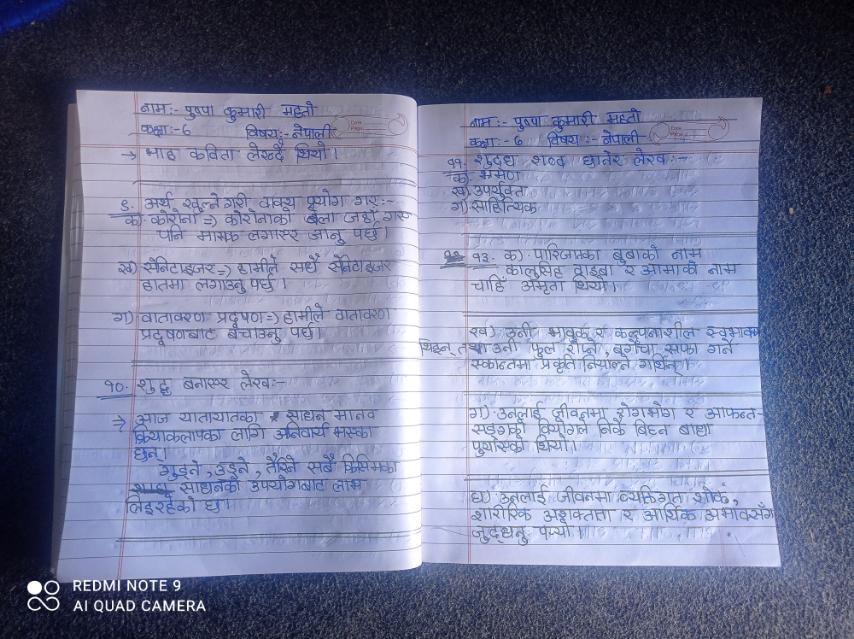 नाम:- पुष्पा कुमारी महतो
कक्षा:-६ विषय:- नेपाली
→ भाह कविता लेख्दै थियो।
९. अर्थ खुल्नेगरी वाक्य प्रयोग गर:-
क) कोरोना => कोरोनाको बेला जहाँ गए
पनि मास्क लगाएर जानु पर्छ।
ख) सेनिटाइजर => हामीले सधैँ सेनिटाइजर
हातमा लगाउनु पर्छ।
ग) वातावरण प्रदूषण => हामीले वातावरण
प्रदूषणबाट बचाउनु पर्छ।
१०. शुद्ध बनाएर लेख:-
=> आज यातायातका साधन मानव
क्रियाकलापका लागि अनिवार्य भएका
छन्।
गुड्ने, उड्ने, तैरिने सबै किसिमका
साधनको उपयोगबाट लाभ
लिइरहेको छ।
नाम:- पुष्पा कुमारी महतो
कक्षा:- ६ विषय:- नेपाली
११. शुद्ध शब्द छानेर लेख:-
क) भ्रमण
ख) उपर्युक्त
ग) साहित्यिक
१३. क) पारिजातका बुबाको नाम
कालुसिंह वाइबा र आमाको नाम
चाहिँ अमृता थियो।
ख) उनी भावुक र कल्पनाशील स्वभावकी
थिइन् तथा उनी फुल रोप्ने, बगैँचा सफा गर्ने
एकान्तमा प्रकृति नियाल्ने गर्थिन्।
ग) उनलाई जीवनमा रोगभोग र आफन्त-
सङ्गको वियोगले निकै बिहन बाधा
पुर्याएको थियो।
घ) उनलाई जीवनमा व्यक्तिगत शोक,
शारीरिक अशक्तता र आर्थिक अभावसँग
जुद्धनु पर्यो।
REDMI NOTE 9
AI QUAD CAMERA